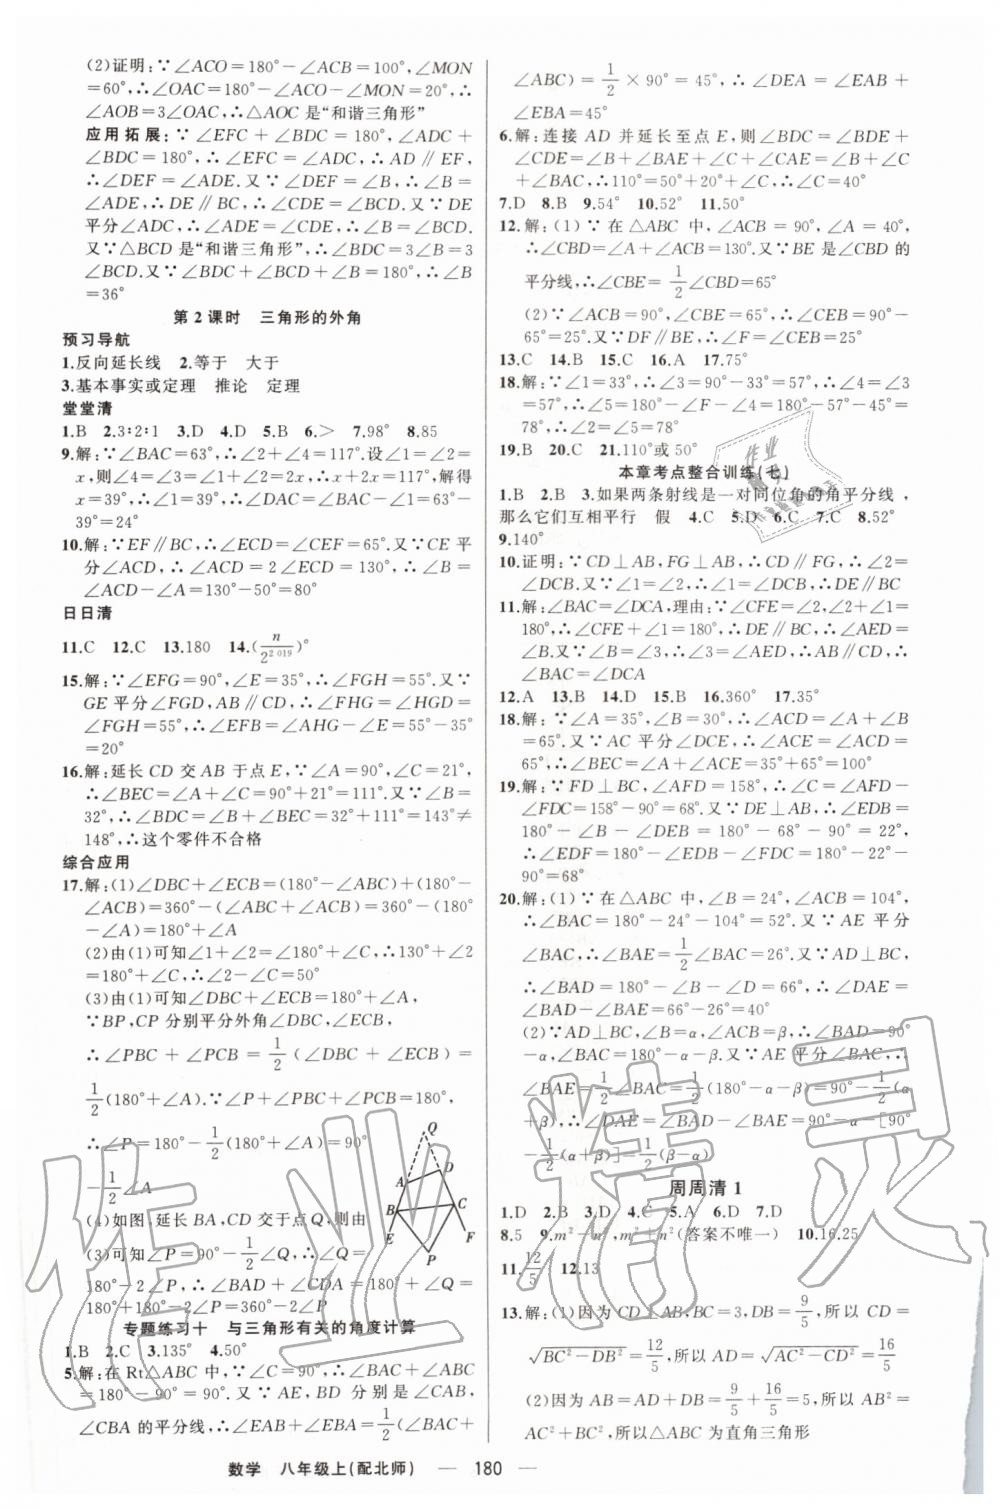 (2)证明:∵∠ACO=180°-∠ACB=100°,∠MON
=60°,∴∠OAC=180°-∠ACO-∠MON=20°,∴
∠AOB=3∠OAC,∴△AOC 是“和谐三角形”
应用拓展:∵∠EFC+∠BDC=180°,∠ADC+
∠BDC=180°,∴∠EFC=∠ADC,∴AD∥EF,
∴∠DEF=∠ADE.又∵∠DEF=∠B,∴∠B=
∠ADE,∴DE∥BC,∴∠CDE=∠BCD.又∵DE
平分∠ADC,∴∠ADE=∠CDE,∴∠B=∠BCD.
又∵△BCD 是“和谐三角形”,∴∠BDC=3∠B=3
∠BCD.又∵∠BDC+∠BCD+∠B=180°,∴∠B
=36°
第 2 课时 三角形的外角
预习导航
1.反向延长线 2.等于 大于
3.基本事实或定理 推论 定理
堂堂清
1.B 2.3∶2∶1 3.D 4.D 5.B 6.> 7.98° 8.85
9.解:∵∠BAC=63°,∴∠2+∠4=117°.设∠1=∠2=
x,则∠4=∠3=∠1+∠2=2x,∴x+2x=117°,∴x=
39°,∴∠1=39°,∴∠DAC=∠BAC-∠1=63°-
39°=24°
10.解:∵EF∥BC,∴∠ECD=∠CEF=65°.又∵CE 平
分∠ACD,∴∠ACD=2∠ECD=130°,∴∠B=
∠ACD-∠A=130°-50°=80°
日日清
11.C 12.C 13.180 14.(n/2^2 019)°
15.解:∵∠EFG=90°,∠E=35°,∴∠FGH=55°.又∵
GE 平分∠FGD,AB∥CD,∴∠FHG=∠HGD=
∠FGH=55°,∴∠EFB=∠AHG-∠E=55°-35°
=20°
16.解:延长 CD 交 AB 于点 E,∵∠A=90°,∠C=21°,
∴∠BEC=∠A+∠C=90°+21°=111°.又∵∠B=
32°,∴∠BDC=∠B+∠BEC=32°+111°=143°≠
148°,∴这个零件不合格
综合应用
17.解:(1)∠DBC+∠ECB=(180°-∠ABC)+(180°-
∠ACB)=360°-(∠ABC+∠ACB)=360°-(180°
-∠A)=180°+∠A
(2)由(1)可知∠1+∠2=180°+∠C,∴130°+∠2
=180°+∠C,∴∠2-∠C=50°
(3)由(1)可知∠DBC+∠ECB=180°+∠A,
∵BP,CP 分别平分外角∠DBC,∠ECB,
∴∠PBC+∠PCB=1/2(∠DBC+∠ECB)=
1/2(180°+∠A).又∵∠P+∠PBC+∠PCB=180°,
∴∠P=180°-1/2(180°+∠A)=90°
-1/2∠A
(4)如图,延长 BA,CD 交于点 Q,则由
(3)可知∠P=90°-1/2∠Q,∴∠Q=
180°-2∠P,∴∠BAD+∠CDA=180°+∠Q=
180°+180°-2∠P=360°-2∠P
Q
A
D
B
C
E
F
P
专题练习十 与三角形有关的角度计算
1.B 2.C 3.135° 4.50°
5.解:在 Rt△ABC 中,∵∠C=90°,∴∠BAC+∠ABC
=180°-90°=90°.又∵AE,BD 分别是∠CAB,
∠CBA 的平分线,∴∠EAB+∠EBA=1/2(∠BAC+
∠ABC)=1/2×90°=45°,∴∠DEA=∠EAB+
∠EBA=45°
6.解:连接 AD 并延长至点 E,则∠BDC=∠BDE+
∠CDE=∠B+∠BAE+∠C+∠CAE=∠B+∠C
+∠BAC,∴110°=50°+20°+∠C,∴∠C=40°
7.D 8.B 9.54° 10.52° 11.50°
12.解:(1)∵在△ABC 中,∠ACB=90°,∠A=40°,
∴∠CBD=∠A+∠ACB=130°.又∵BE 是∠CBD 的
平分线,∴∠CBE=1/2∠CBD=65°
(2)∵∠ACB=90°,∠CBE=65°,∴∠CEB=90°-
65°=25°.又∵DF∥BE,∴∠F=∠CEB=25°
13.C 14.B 15.C 16.A 17.75°
18.解:∵∠1=33°,∴∠3=90°-33°=57°,∴∠4=∠3
=57°,∴∠5=180°-∠F-∠4=180°-57°-45°=
78°,∴∠2=∠5=78°
19.B 20.C 21.110°或 50°
本章考点整合训练(七)
1.B 2.B 3.如果两条射线是一对同位角的角平分线,
那么它们互相平行 假 4.C 5.D 6.C 7.C 8.52°
9.140°
10.证明:∵CD⊥AB,FG⊥AB,∴CD∥FG,∴∠2=
∠DCB.又∵∠1=∠2,∴∠1=∠DCB,∴DE∥BC
11.解:∠BAC=∠DCA,理由:∵∠CFE=∠2,∠2+∠1=
180°,∴∠CFE+∠1=180°,∴DE∥BC,∴∠AED=
∠B.又∵∠B=∠3,∴∠3=∠AED,∴AB∥CD,
∴∠BAC=∠DCA
12.A 13.B 14.D 15.B 16.360° 17.35°
18.解:∵∠A=35°,∠B=30°,∴∠ACD=∠A+∠B
=65°.又∵AC 平分∠DCE,∴∠ACE=∠ACD=
65°,∴∠BEC=∠A+∠ACE=35°+65°=100°
19.解:∵FD⊥BC,∠AFD=158°,∴∠C=∠AFD-
∠FDC=158°-90°=68°.又∵DE⊥AB,∴∠EDB=
180°-∠B-∠DEB=180°-68°-90°=22°,
∴∠EDF=180°-∠EDB-∠FDC=180°-22°-
90°=68°
20.解:(1)∵在△ABC 中,∠B=24°,∠ACB=104°,
∴∠BAC=180°-24°-104°=52°.又∵AE 平分
∠BAC,∴∠BAE=1/2∠BAC=26°.又∵AD⊥BC,
∴∠BAD=180°-∠B-∠D=66°,∴∠DAE=
∠BAD-∠BAE=66°-26°=40°
(2)∵AD⊥BC,∠B=α,∠ACB=β,∴∠BAD=90°
-α,∠BAC=180°-α-β.又∵AE 平分∠BAC,∴
∠BAE=1/2∠BAC=1/2(180°-α-β)=90°-1/2(α
+β),∴∠DAE=∠BAD-∠BAE=90°-α-[90°
-1/2(α+β)]=1/2(β-α)
周周清 1
1.D 2.B 3.D 4.C 5.A 6.D 7.D
8.5 9.m²-n²,m²+n²(答案不唯一) 10.16,25
11.12/5 12.13
13.解:(1)因为 CD⊥AB,BC=3,DB=9/5,所以 CD=
√(BC²-DB²)=12/5,所以 AD=√(AC²-CD²)=16/5
(2)因为 AB=AD+DB=9/5+16/5=5,所以 AB²=
AC²+BC²,所以△ABC 为直角三角形
数学 八年级上(配北师) — 180 —
作业精灵